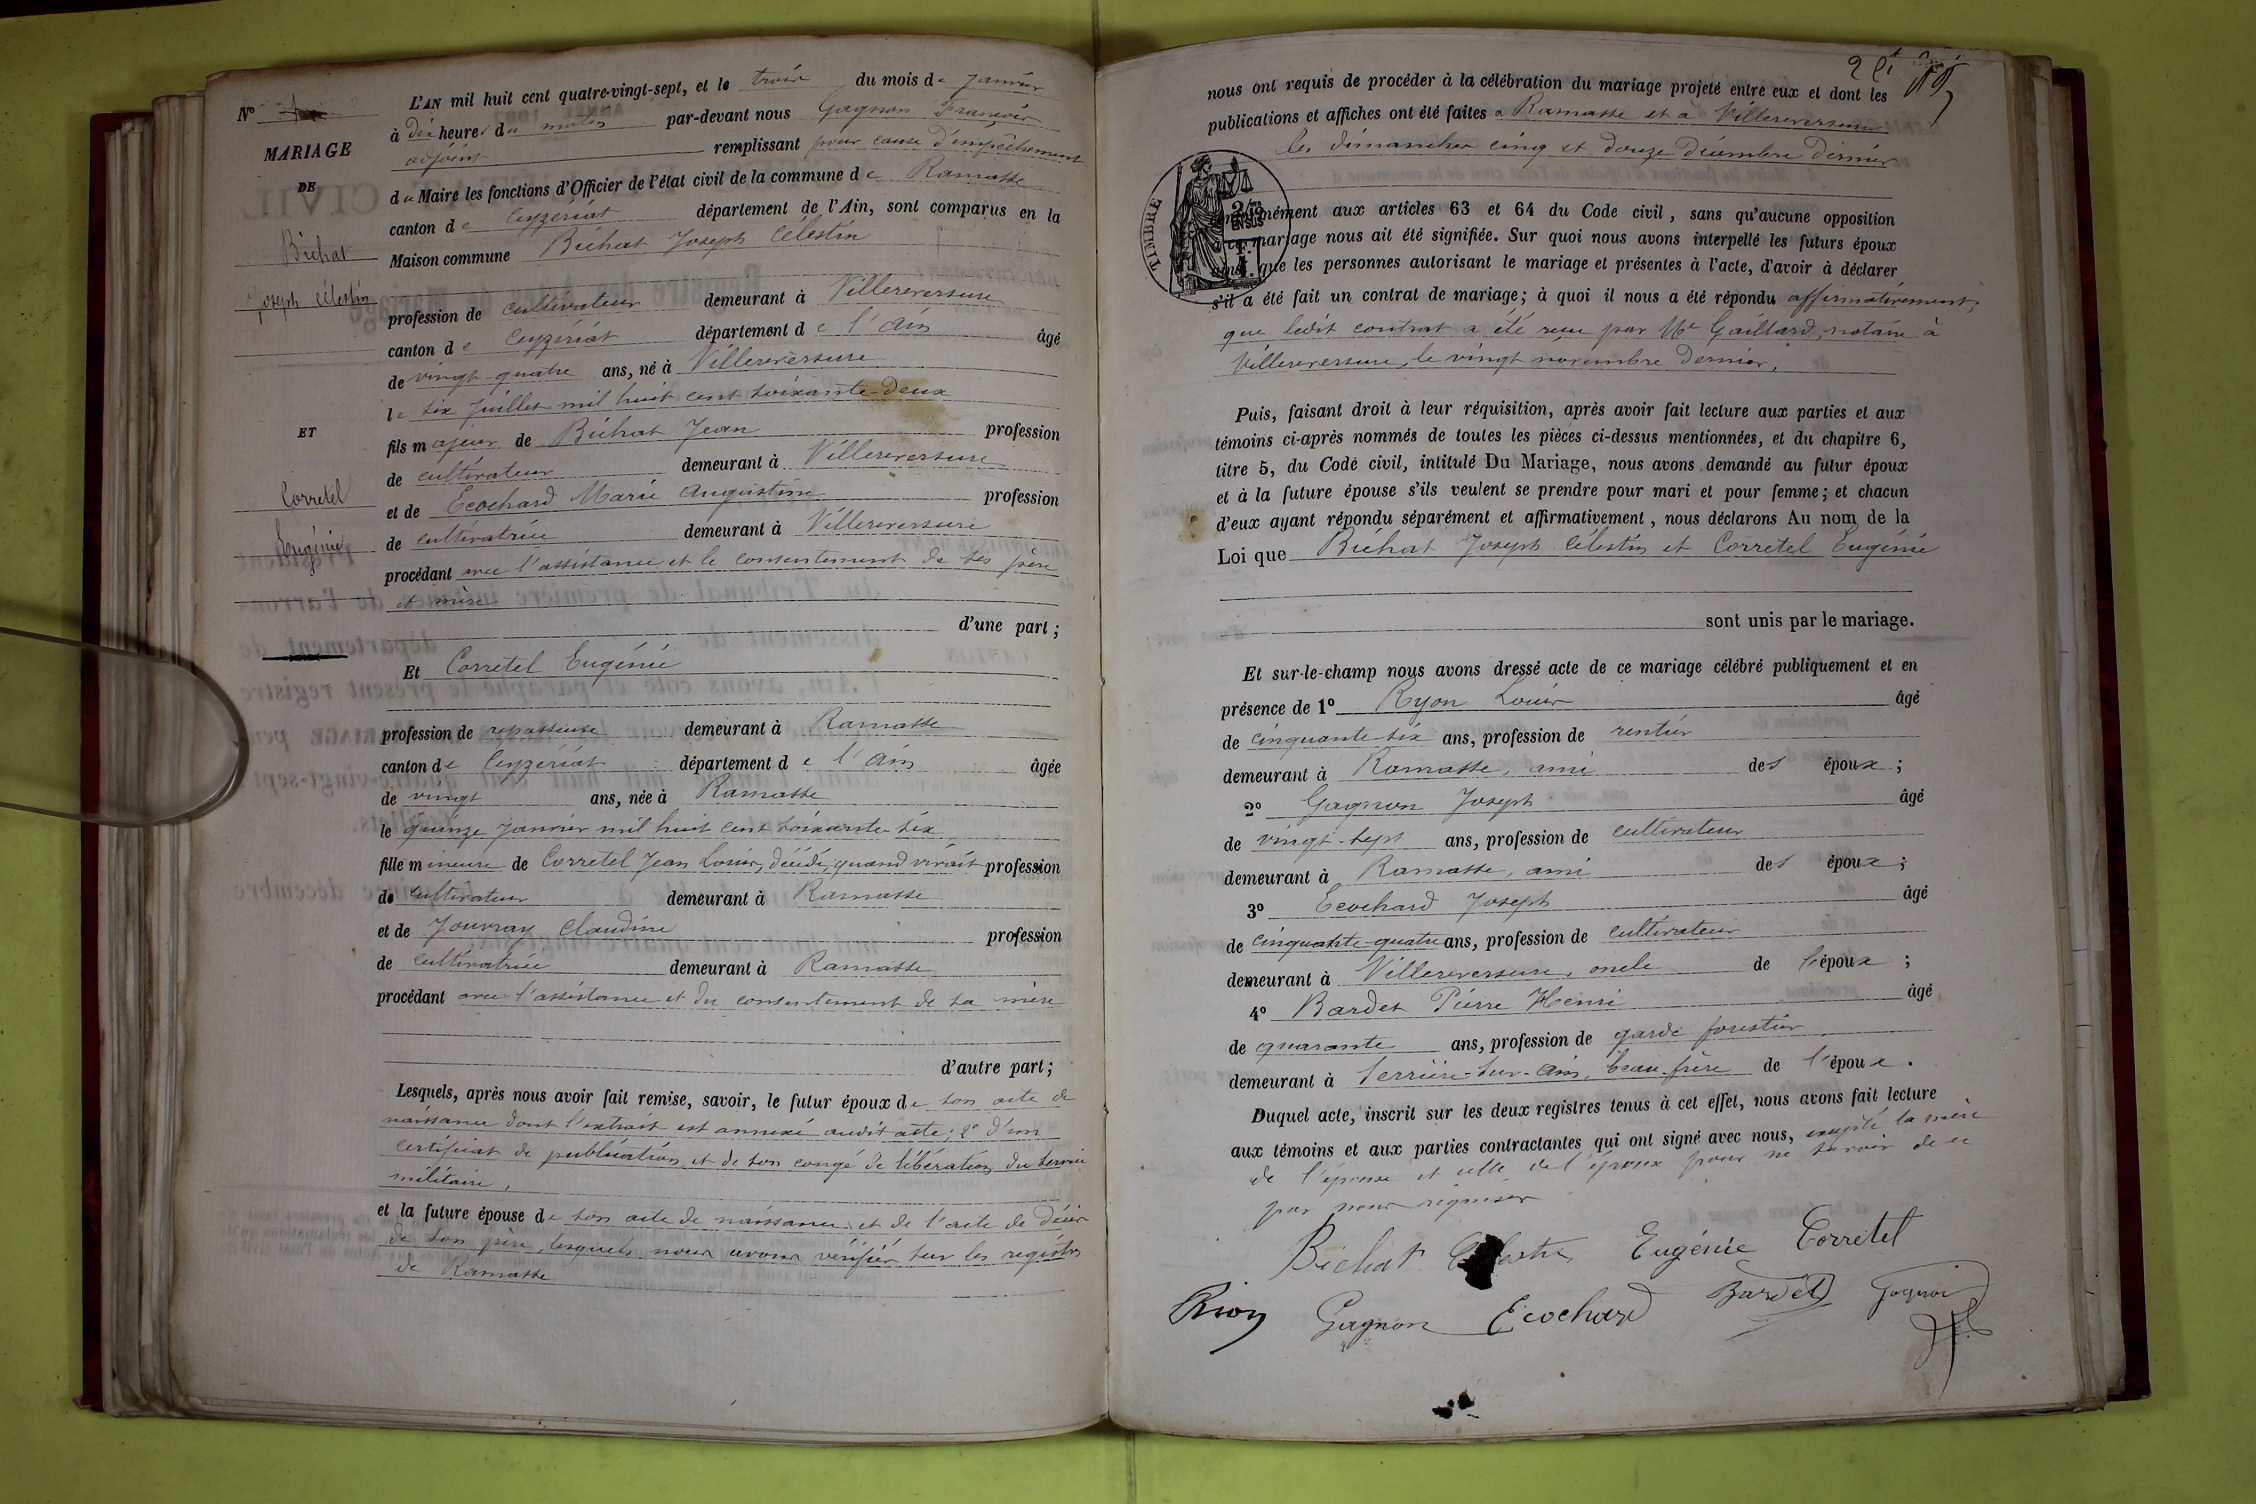 N°
MARIAGE
DE
Bichat
Joseph Célestin
ET
Corretel
Eugénie
L'AN mil huit cent quatre-vingt-sept, et le trois du mois de Janvier
à dix heures du matin par-devant nous Gagnon François
adjoint remplissant pour cause d'empêchement
du Maire les fonctions d'Officier de l'état civil de la commune de Ramasse
canton de Ceyzériat département de l'Ain, sont comparus en la
Maison commune Bichat Joseph Célestin
profession de cultivateur demeurant à Villereversure
canton de Ceyzériat département de l'Ain âgé
de vingt-quatre ans, né à Villereversure
le six Juillet mil huit cent soixante-deux
fils majeur de Bichat Jean profession
de cultivateur demeurant à Villereversure
et de Ecochard Marie Augustine profession
de cultivatrice demeurant à Villereversure
procédant avec l'assistance et le consentement de ses père
et mère
d'une part ;
Et Corretel Eugénie
profession de repasseuse demeurant à Ramasse
canton de Ceyzériat département de l'Ain âgée
de vingt ans, née à Ramasse
le quinze Janvier mil huit cent soixante-six
fille mineure de Corretel Jean Louis, décédé, quand vivait profession
de cultivateur demeurant à Ramasse
et de Jouvray Claudine profession
de cultivatrice demeurant à Ramasse
procédant avec l'assistance et du consentement de sa mère
d'autre part ;
Lesquels, après nous avoir fait remise, savoir, le futur époux de son acte de
naissance dont l'extrait est annexé audit acte ; 2° d'un
certificat de publication et de son congé de libération du service
militaire,
et la future épouse de son acte de naissance et de l'acte de décès
de son père, lesquels nous avons vérifié sur les registres
de Ramasse
nous ont requis de procéder à la célébration du mariage projeté entre eux et dont les
publications et affiches ont été faites à Ramasse et à Villereversure
les dimanches cinq et douze décembre dernier
TIMBRE
conformément aux articles 63 et 64 du Code civil, sans qu'aucune opposition
mariage nous ait été signifiée. Sur quoi nous avons interpellé les futurs époux
ainsi que les personnes autorisant le mariage et présentes à l'acte, d'avoir à déclarer
s'il a été fait un contrat de mariage ; à quoi il nous a été répondu affirmativement,
que ledit contrat a été reçu par Me Gaillard, notaire à
Villereversure, le vingt novembre dernier.
Puis, faisant droit à leur réquisition, après avoir fait lecture aux parties et aux
témoins ci-après nommés de toutes les pièces ci-dessus mentionnées, et du chapitre 6,
titre 5, du Code civil, intitulé Du Mariage, nous avons demandé au futur époux
et à la future épouse s'ils veulent se prendre pour mari et pour femme ; et chacun
d'eux ayant répondu séparément et affirmativement, nous déclarons Au nom de la
Loi que Bichat Joseph Célestin et Corretel Eugénie
sont unis par le mariage.
Et sur-le-champ nous avons dressé acte de ce mariage célébré publiquement et en
présence de 1° Ryon Louis âgé
de cinquante-six ans, profession de rentier
demeurant à Ramasse, ami des époux ;
2° Gagnon Joseph âgé
de vingt-sept ans, profession de cultivateur
demeurant à Ramasse, ami des époux ;
3° Ecochard Joseph âgé
de cinquante-quatre ans, profession de cultivateur
demeurant à Villereversure, oncle de l'époux ;
4° Bardet Pierre Henri âgé
de quarante ans, profession de garde forestier
demeurant à Serrière-sur-Ain, beau-frère de l'époux.
Duquel acte, inscrit sur les deux registres tenus à cet effet, nous avons fait lecture
aux témoins et aux parties contractantes qui ont signé avec nous, excepté la mère
de l'épouse et celle de l'époux pour ne savoir de ce
par nous requises
Bichat Eugénie Corretel
Rion Gagnon Ecochard Bardet Gagnon